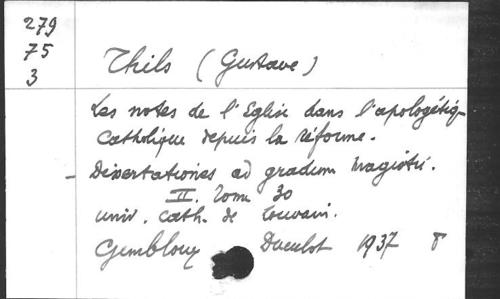 279
75
3
Thils (Gustave)
Les notes de l'Eglise dans l'apologétiq
Catholique depuis la réforme.
- Dissertationes ad gradum Magistri.
II. Tom 30
univ. cath. de Louvain.
Gembloux Duculot 1937 8